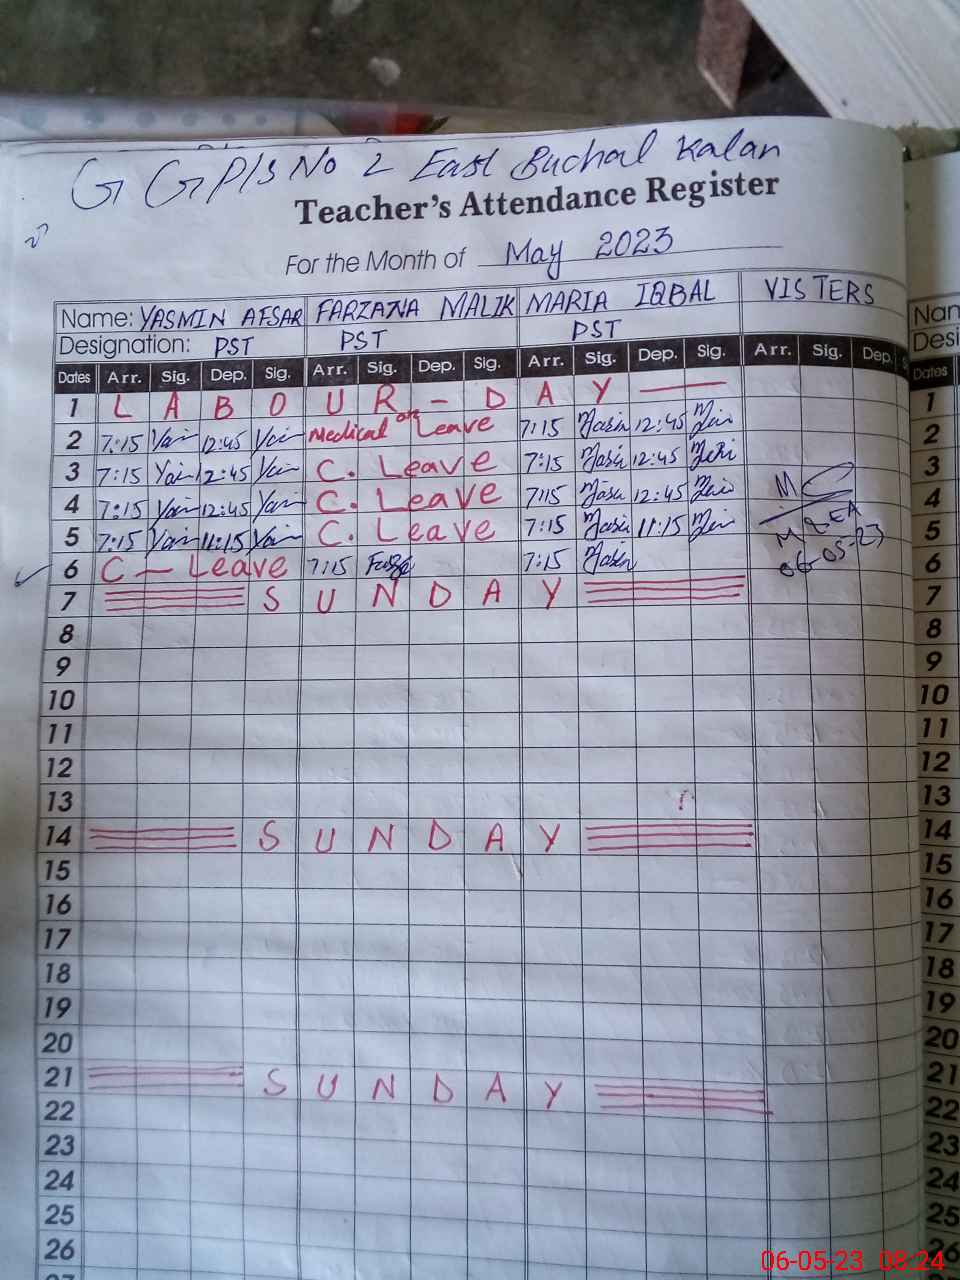 G G P/S No 2 East Buchal Kalan
Teacher's Attendance Register
For the Month of May 2023
Name: YASMIN AFSAR FARZANA MALIK MARIA IQBAL VISTERS
Designation: PST PST PST
Dates Arr. Sig. Dep. Sig. Arr. Sig. Dep. Sig. Arr. Sig. Dep. Sig. Arr. Sig. Dep.
1 L A B O U R - D A Y
2 7:15 12:45 Medical on Leave 7:15 12:45
3 7:15 12:45 C. Leave 7:15 12:45
4 7:15 12:45 C. Leave 7:15 12:45
5 7:15 11:15 C. Leave 7:15 11:15
6 C - Leave 7:15 7:15
MEA
06-05-23
7 S U N D A Y
8
9
10
11
12
13
14 S U N D A Y
15
16
17
18
19
20
21 S U N D A Y
22
23
24
25
26
Dates
1
2
3
4
5
6
7
8
9
10
11
12
13
14
15
16
17
18
19
20
21
22
23
24
25
26
06-05-23 08:24